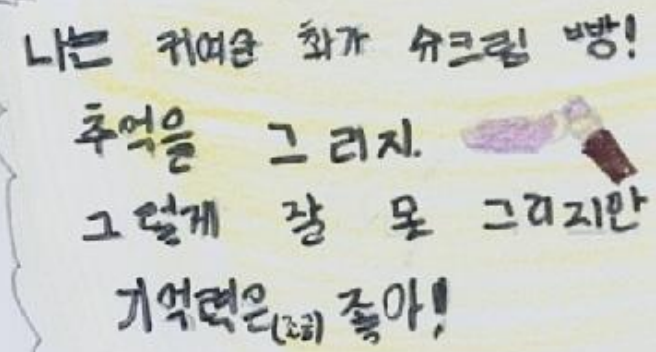 나는 귀여운 화가 슈크림 빵!
추억을 그리지.
그렇게 잘 못 그리지만
기억력은(조금) 좋아!